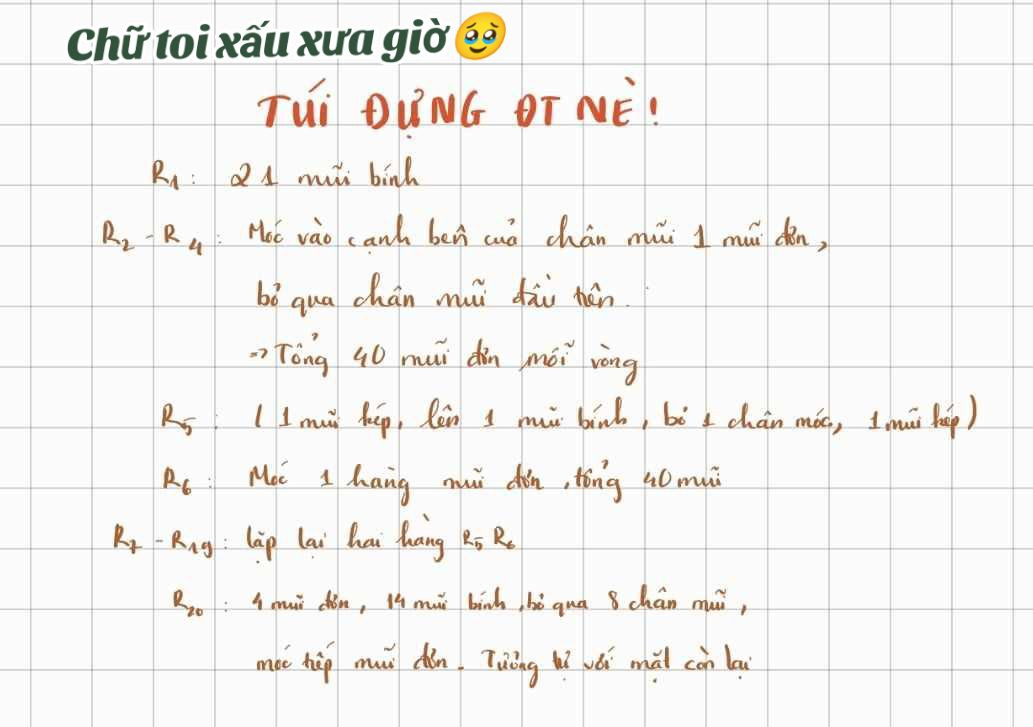 Chữ toi xấu xưa giờ 🥹
TÚI ĐỰNG ĐT NÈ!
R1: 21 mũi bính
R2 - R4: Móc vào cạnh bên của chân mũi 1 mũi đơn,
bỏ qua chân mũi đầu tiên.
=> Tổng 40 mũi đơn mỗi vòng
R5: (1 mũi kép, lên 1 mũi bính, bỏ 1 chân móc, 1 mũi kép)
R6: Móc 1 hàng mũi đơn, tổng 40 mũi
R7 - R19: lặp lại hai hàng R5 R6
R20: 4 mũi đơn, 14 mũi bính, bỏ qua 8 chân mũi,
móc tiếp mũi đơn. Tương tự với mặt còn lại